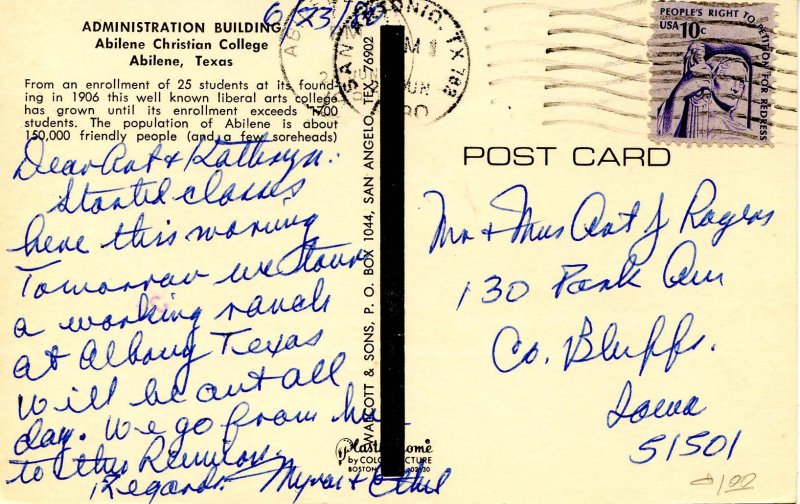 ADMINISTRATION BUILDING
Abilene Christian College
Abilene, Texas
From an enrollment of 25 students at its found-
ing in 1906 this well known liberal arts college
has grown until its enrollment exceeds 1700
students. The population of Abilene is about
150,000 friendly people (and a few soreheads)
6/23/80
Dear Art & Kathryn:
Started classes
here this morning
Tomorrow we tour
a working ranch
at Albany Texas
Will be out all
day. We go from here
to the Reunion
Regards Myron & Ethel
WARCOTT & SONS, P. O. BOX 1044, SAN ANGELO, TEX. 76902
Plastichrome
by COLOURPICTURE
BOSTON 02130
SAN ANTONIO, TX 782
JUN
PEOPLE'S RIGHT TO PETITION FOR REDRESS
USA 10c
POST CARD
Mr & Mrs Art J Rogers
130 Park Ave
Co. Bluffs.
Iowa
51501
1.00